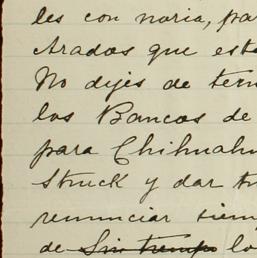 les con noria, pa
Arados que est
No dijes de ter
los Bancos de
para Chihuahu
Struck y dar t
renunciar siem
de ~~Sin tiempo~~ lo